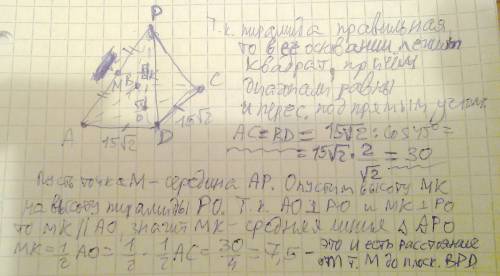 P
M
B
K
O
C
A
D
15√2
15√2
Т.к. пирамида правильная
то в её основании лежит
квадрат, причем
диагонали равны
и перес. под прямым углом
AC = BD = 15√2 : cos 45° =
= 15√2 · 2/√2 = 30
Пусть точка M - середина AP. Опустим высоту MK
на высоту пирамиды PO. Т.к. AO⊥PO и MK⊥PO
то MK ∥ AO, значит MK - средняя линия △APO
MK = 1/2 AO = 1/2 · 1/2 AC = 30/4 = 7,5 - это и есть расстояние
от т. M до плоск. BPD.